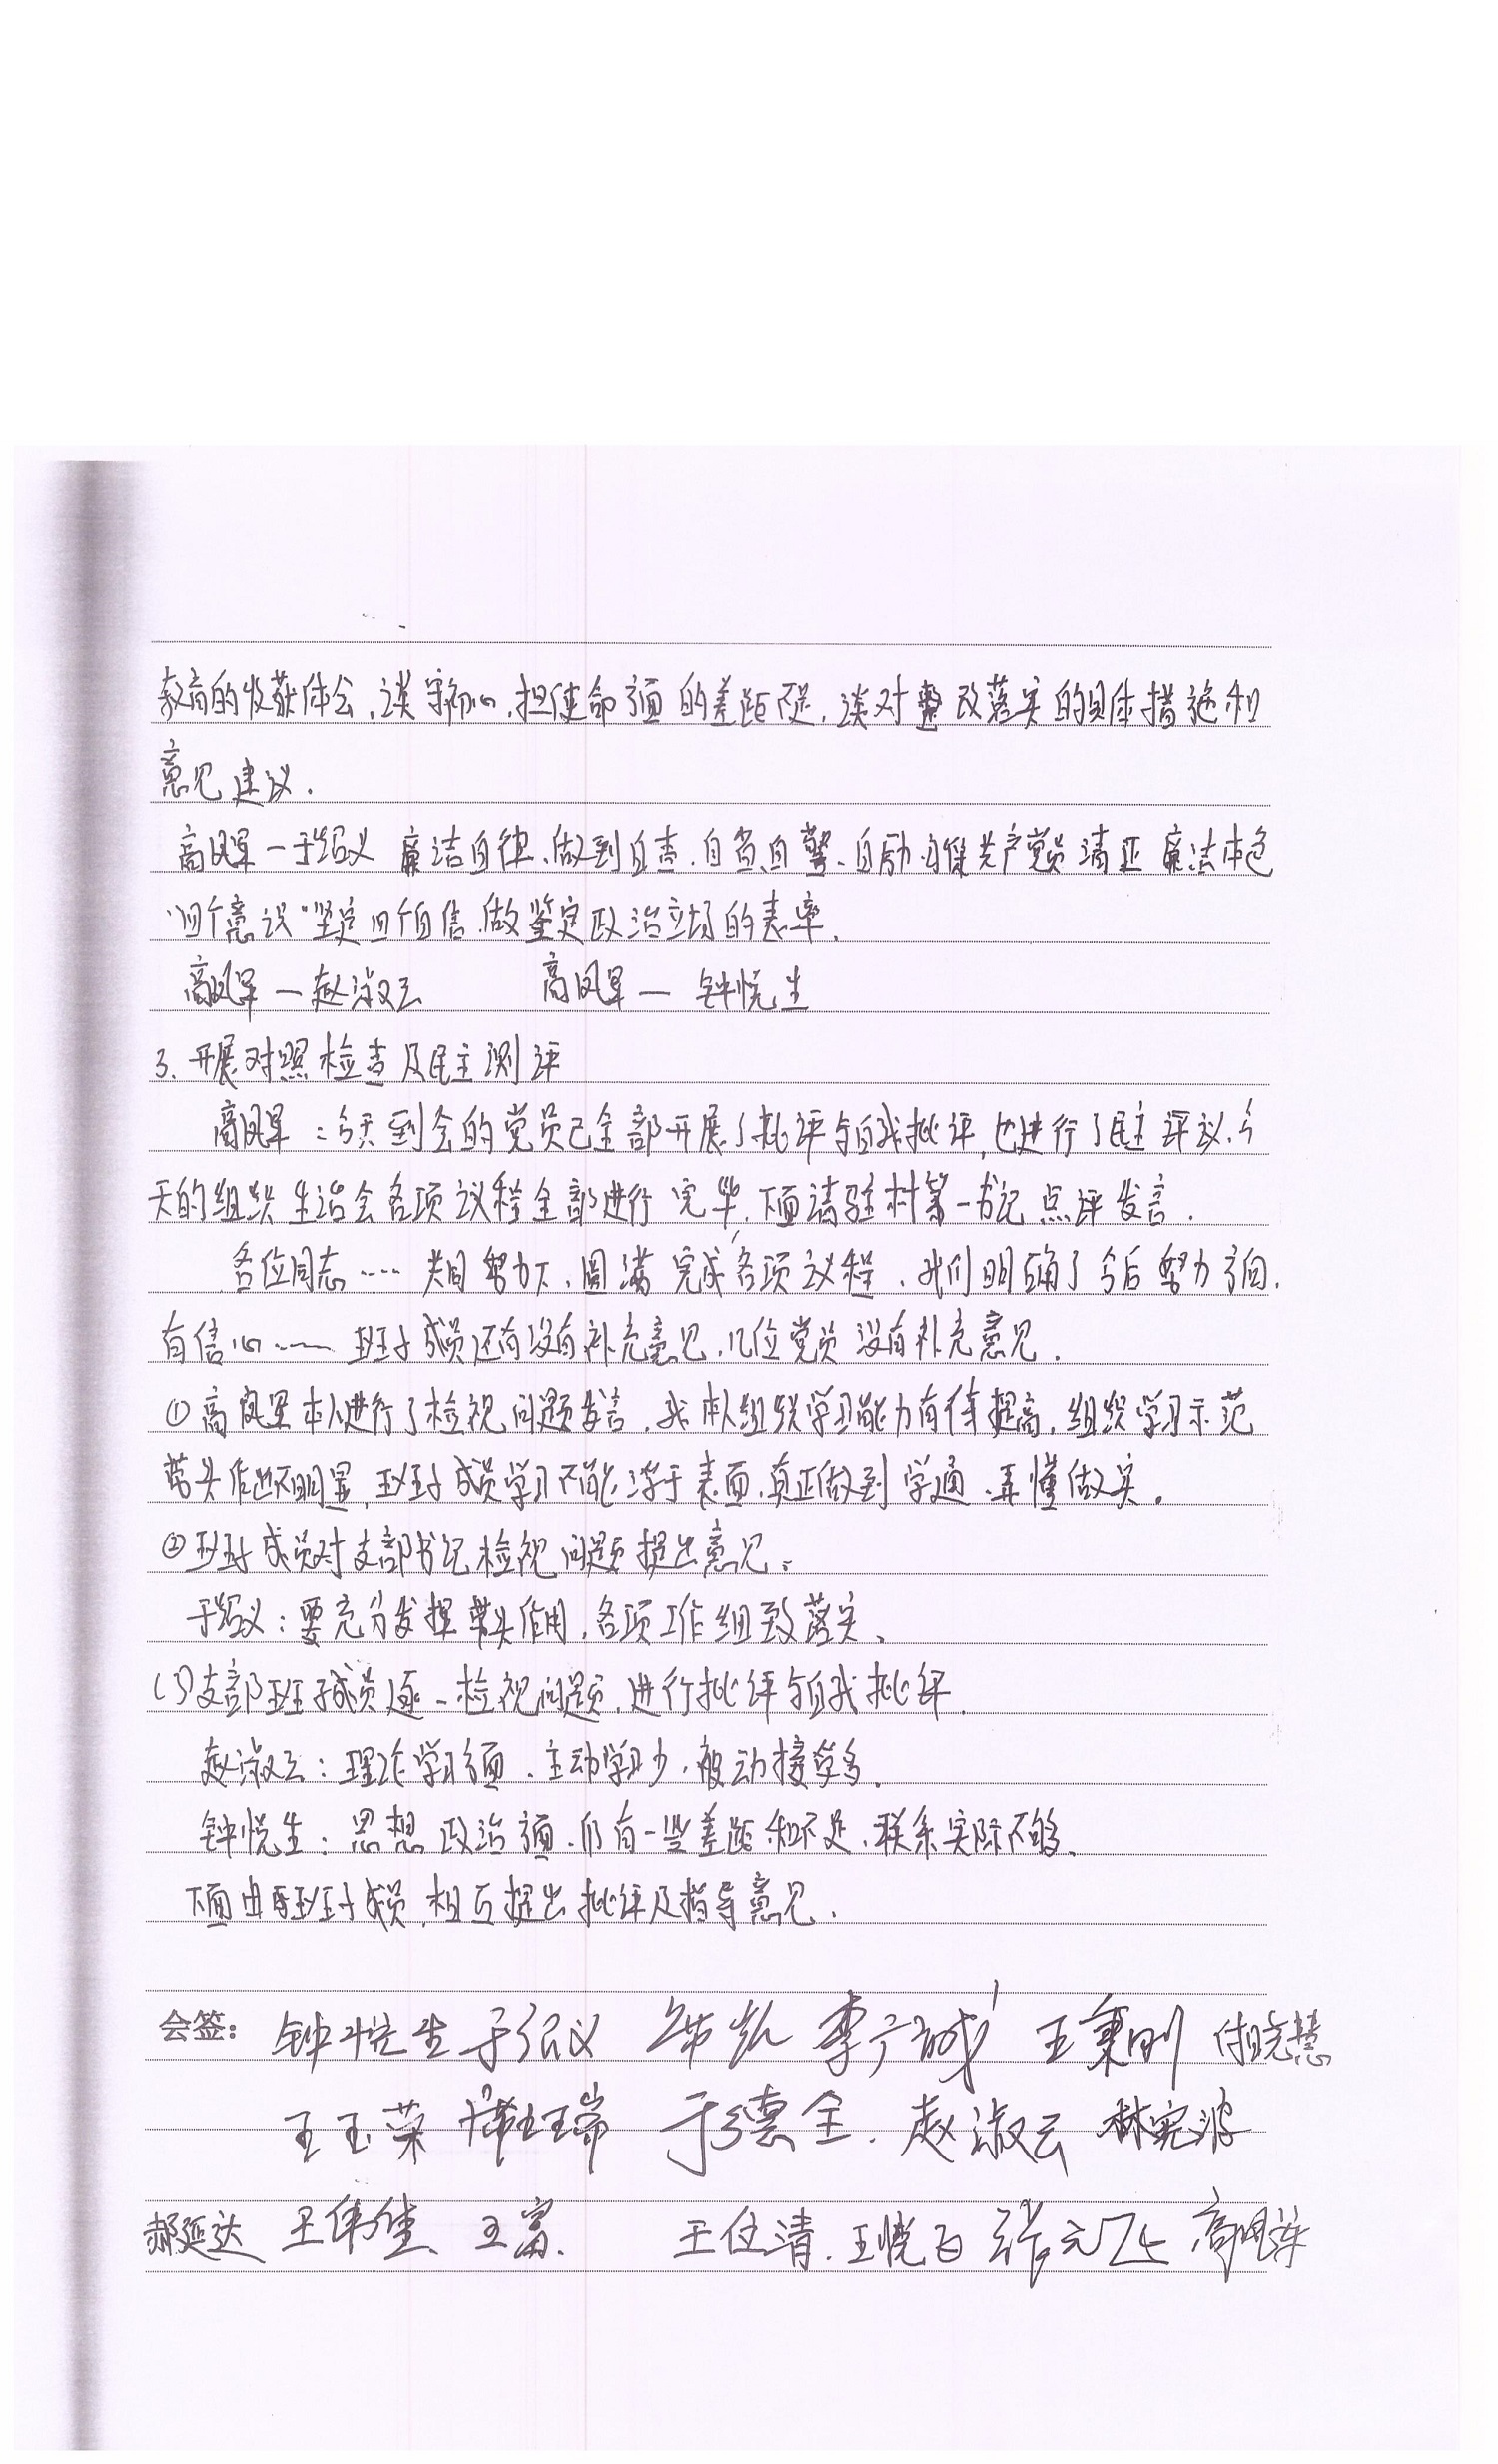 教育的收获体会、谈守初心、担使命方面的差距不足，谈对整改落实的具体措施和
意见建议.
高凤军—于绍义 廉洁自律、做到自查、自省、自警、自励、确保共产党员清正廉洁本色
“四个意识”坚定四个自信、做鉴定政治立场的表率.
高凤军—赵淑云 高凤军—钟悦生
3、开展对照检查及民主测评
高凤军：今天到会的党员已全部开展了批评与自我批评，也进行了民主评议、今
天的组织生活会各项议程全部进行完毕，下面请驻村第一书记点评发言.
各位同志……共同努力下、圆满完成各项议程、我们明确了今后努力方向.
有信心……班子成员还有没有补充意见、几位党员没有补充意见.
①高凤军本人进行了检视问题发言、我本人组织学习能力有待提高，组织学习示范
带头作用不明显，班子成员学习不能浮于表面、真正做到学通、弄懂做实。
②班子成员对支部书记检视问题提出意见：
于绍义：要充分发挥带头作用，各项工作细致落实、
(3)支部班子成员逐一检视问题，进行批评与自我批评.
赵淑云：理论学习方面、主动学习少、被动接受多.
钟悦生：思想政治方面、仍有一些差距和不足、联系实际不够、
下面由班子成员，相互提出批评及指导意见.
会签： 钟悦生 于绍义 李广诚 王秉刚 付晓慧
王玉荣 于德全. 赵淑云 林宪波
郝延达 王伟佳、王富、 王仕清. 王悦